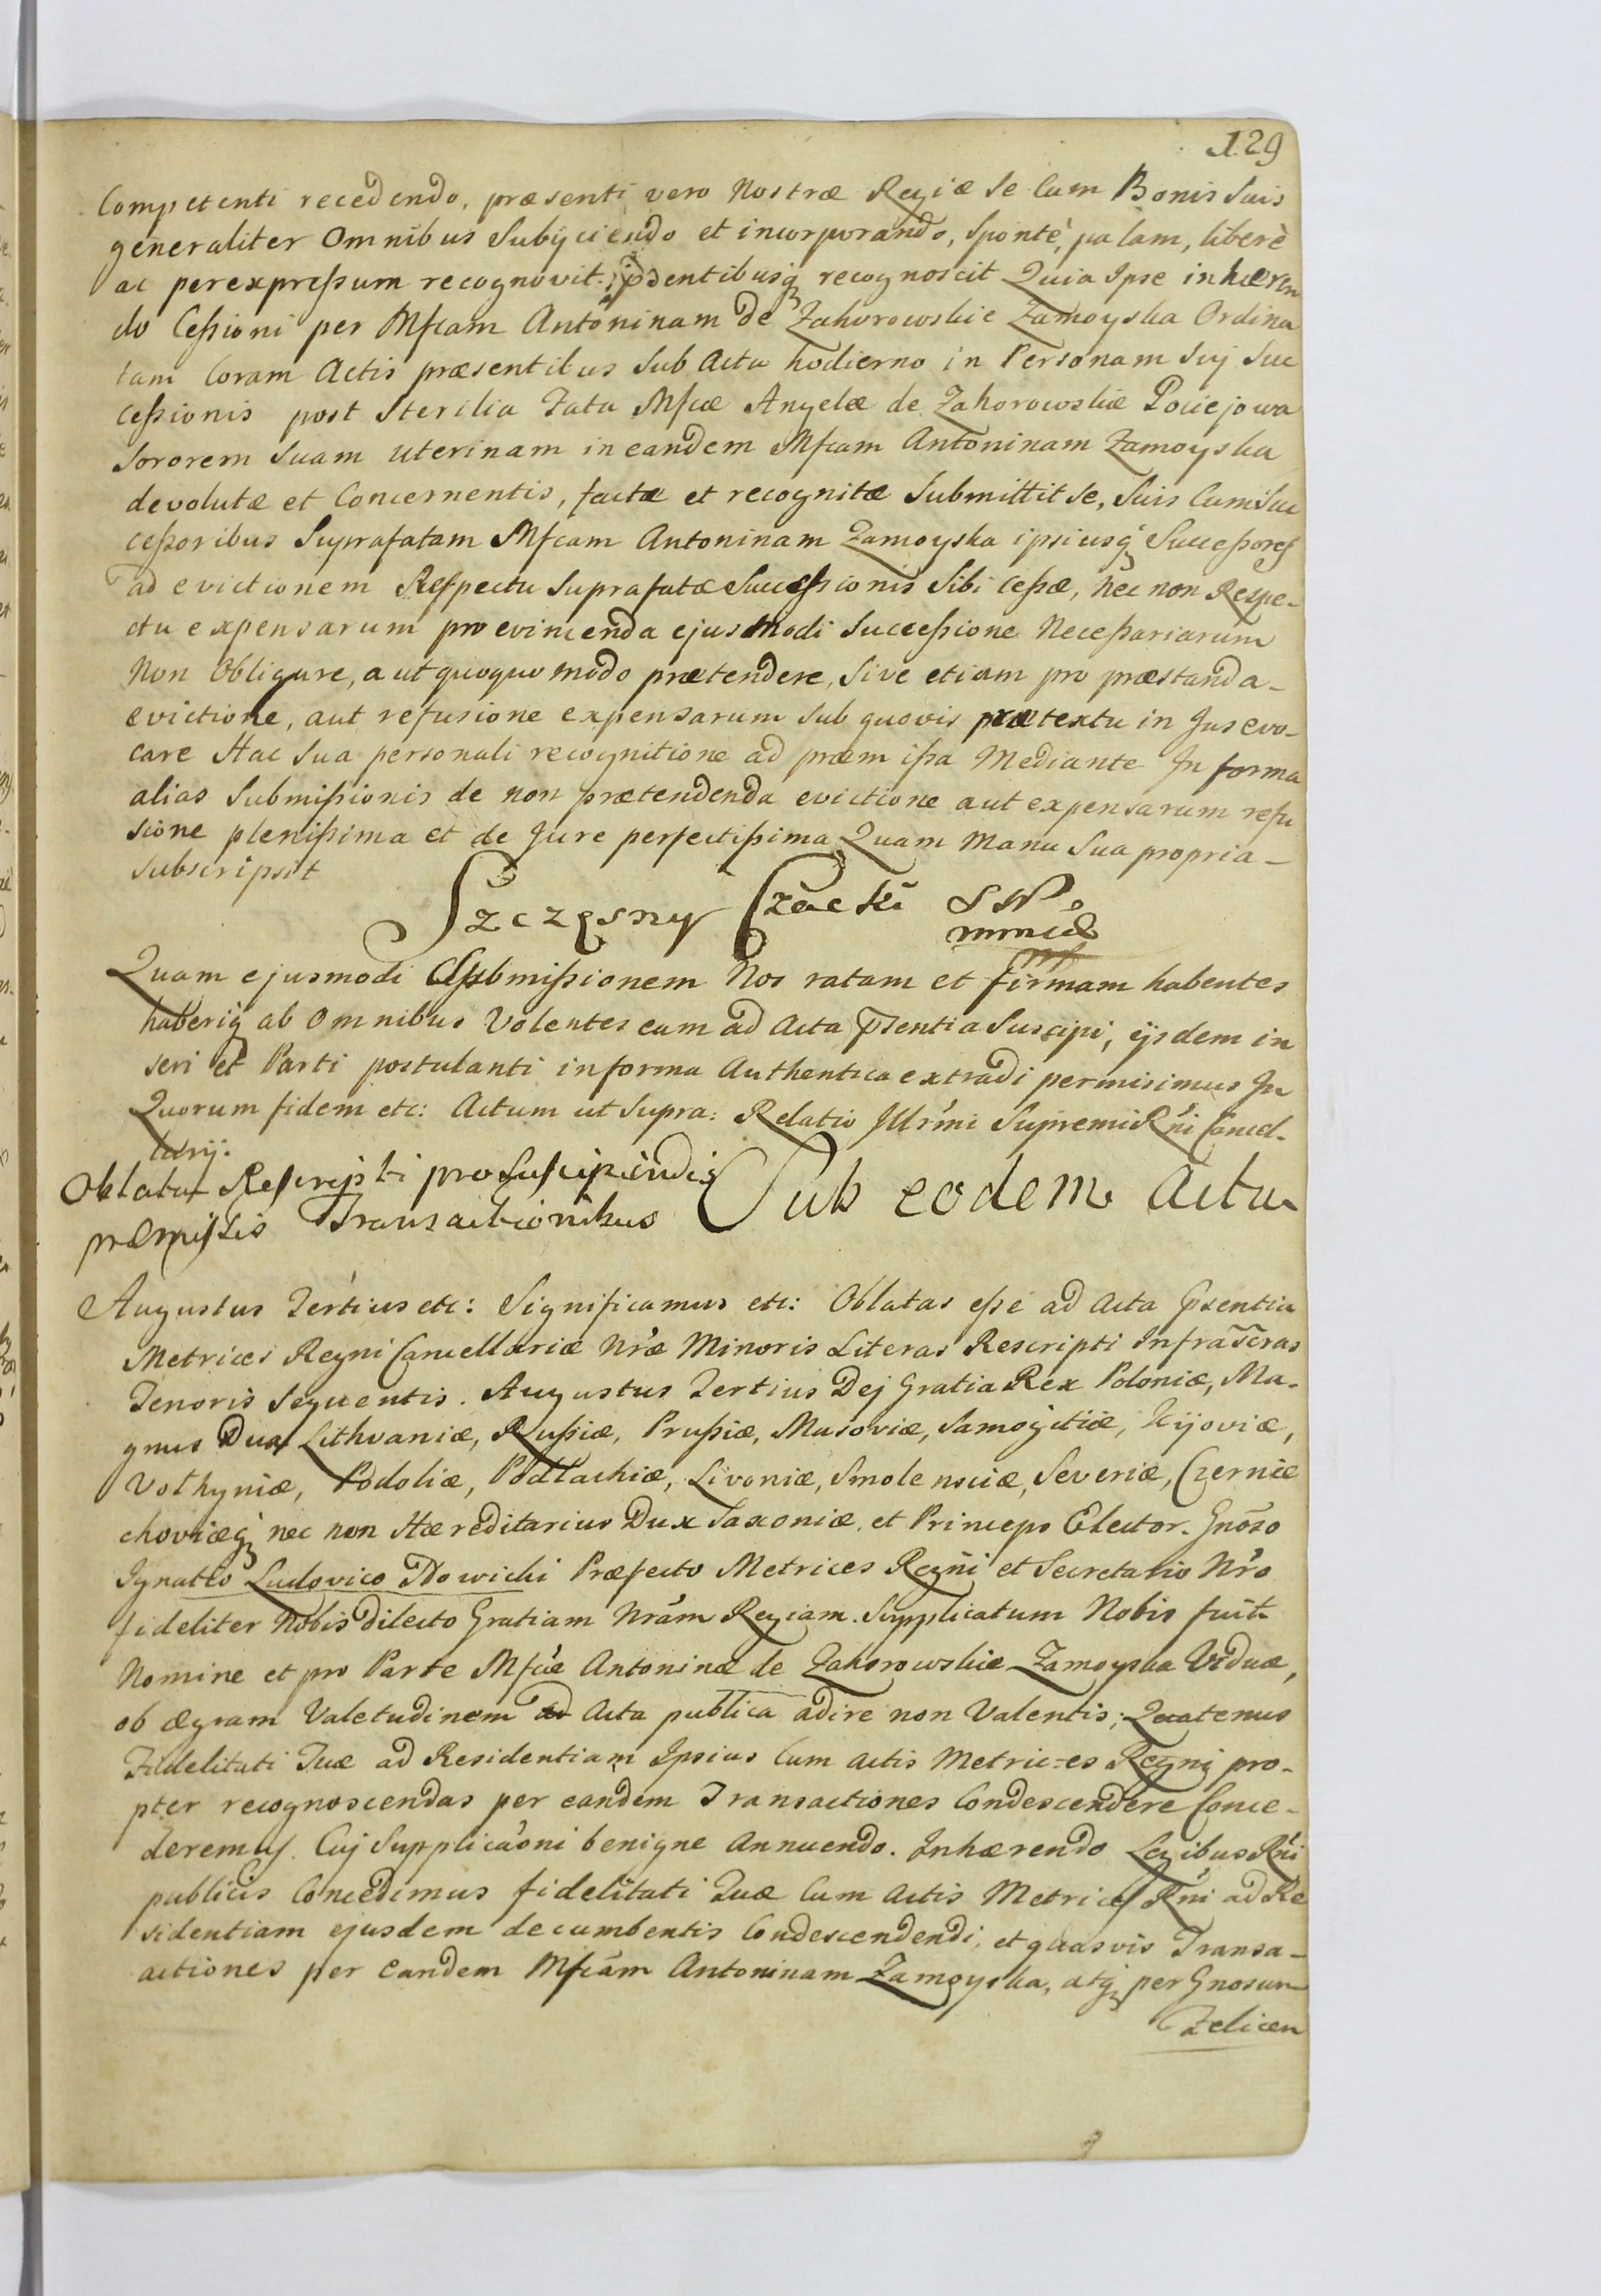 129
Competenti recedendo, præsenti vero Nostræ Regiæ se Cum Bonis Suis
generaliter Omnibus Subijciendo et incorporando, Sponte, palam, liberè
ac per expreßum recognovit. pñsentibusq, recognoscit Quia Ipse inhæren
do Ceßioni per Mfcam Antoninam de Zahorowskie Zamoyska Ordina
tam Coram Actis præsentibus Sub Actu hodierno in Personam Suj Suc
ceßionis post Sterilia Fata Mfcæ Angelæ de Zahorowskie Pociejowa
Sororem Suam Uterinam in eandem Mfcam Antoninam Zamoyska
devolutæ et Concernentis, factæ et recognitæ Submittit Se, Suis Cum Suc
ceßoribus Suprafatam Mfcam Antoninam Zamoyska ipsiusq Succeßores
ad evictionem Respectu Suprafatæ Succeßionis Sibi Ceßæ, nec non Respe-
ctu expensarum pro evincenda ejusmodi Succeßione Neceßariarum
Non Obligare, aut quoquo modo prætendere, Sive etiam pro præstanda-
evictione, aut refusione expensarum Sub quovis prætextu in Jus evo-
care Hac Sua personali recognitione ad præmißa Mediante In forma
alias Submißionis de non prætendenda evictione aut expensarum refu
sione plenißima et de Jure perfectißima Quam Manu Sua propria-
Subscripsit
Szczęsny Czacki
Quam ejusmodi Submißionem Nos ratam et firmam habentes
haberiq ab Omnibus Volentes eam ad Acta pñsentia Suscipi, ijsdem in
seri et Parti postulanti in forma Authentica extradi permisimus In
Quorum fidem etc: Actum ut Supra: Relatio Illr̃mi Supremi Rñi Cancel-
larij.
Oblata Rescripti pro Suscipiendis
præmissis Transactionibus
Sub eodem Actu
Augustus Tertius etc: Significamus etc: Oblatas eße ad Acta pñsentia
Metrices Regni Cancellariæ Nr̃æ Minoris Literas Rescripti Infrascr̃as
Tenoris Sequentis. Augustus Tertius Dej Gratia Rex Poloniæ, Ma-
gnus Dux Lithvaniæ, Rußiæ, Prußiæ, Masoviæ, Samogitiæ, Kijoviæ,
Volhyniæ, Podoliæ, Podlachiæ, Livoniæ, Smolensciæ, Severiæ, Czernie
choviæq nec non Hæreditarius Dux Saxoniæ, et Princeps Elector. Gnõso
Ignatio Ludovico Nowicki Præfecto Metrices Regñi et Secretario Nr̃o
fideliter Nobis Dilecto Gratiam Nrãm Regiam. Supplicatum Nobis fuit
Nomine et pro Parte Mfcæ Antoninæ de Zahorowskie Zamoyska Viduæ,
ob ægram Valetudinem ad Acta publica adire non Valentis; Quatenus
Fidelitati Tuæ ad Residentiam Ipsius Cum Actis Metric=es Regni pro-
pter recognoscendas per eandem Transactiones Condescendere Conce-
deremus. Cuj Supplicãoni benigne Annuendo. Inhærendo Legibus Rñi
publicis Concedimus fidelitati Tuæ Cum Actis Metrices Rñi ad Re
sidentiam ejusdem decumbentis Condescendendi, et quasvis Transa-
actiones per Eandem Mfcãm Antoninam Zamoyska, atq per Gnosum
Felicem